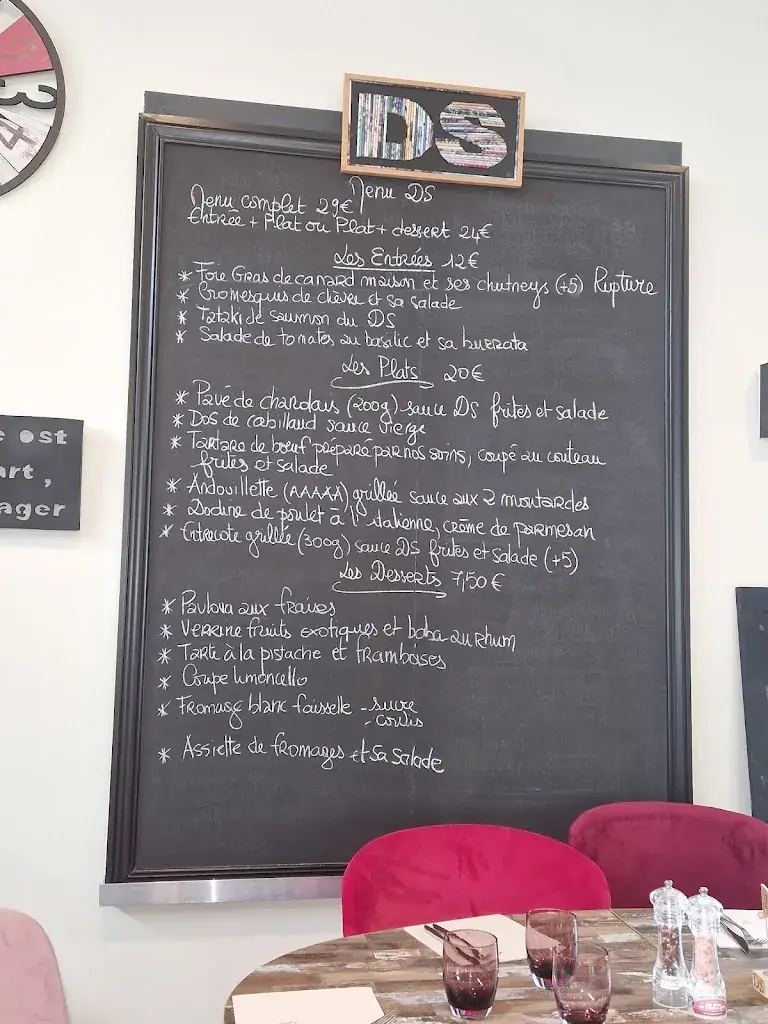 DS
Menu DS
Menu complet 29€
Entrée + Plat ou Plat + dessert 24€
Les Entrées 12€
* Foie Gras de canard maison et ses chutneys (+5) Rupture
* Cromesquis de chèvre et sa salade
* Tataki de saumon du DS
* Salade de tomates au basilic et sa burrata
Les Plats 20€
* Pavé de charolais (200g) sauce DS frites et salade
* Dos de cabillaud sauce vierge
* Tartare de bœuf préparé par nos soins, coupé au couteau
frites et salade
* Andouillette (AAAAA) grillée sauce aux 2 moutardes
* Dodine de poulet à l'italienne, crème de parmesan
* Entrecote grillée (300g) sauce DS frites et salade (+5)
Les Desserts 7,50€
* Pavlova aux fraises
* Verrine fruits exotiques et baba au rhum
* Tarte à la pistache et framboises
* Coupe limoncello
* Fromage blanc faisselle - sucre
- coulis
* Assiette de fromages et sa salade
3
4
e est
art,
ager